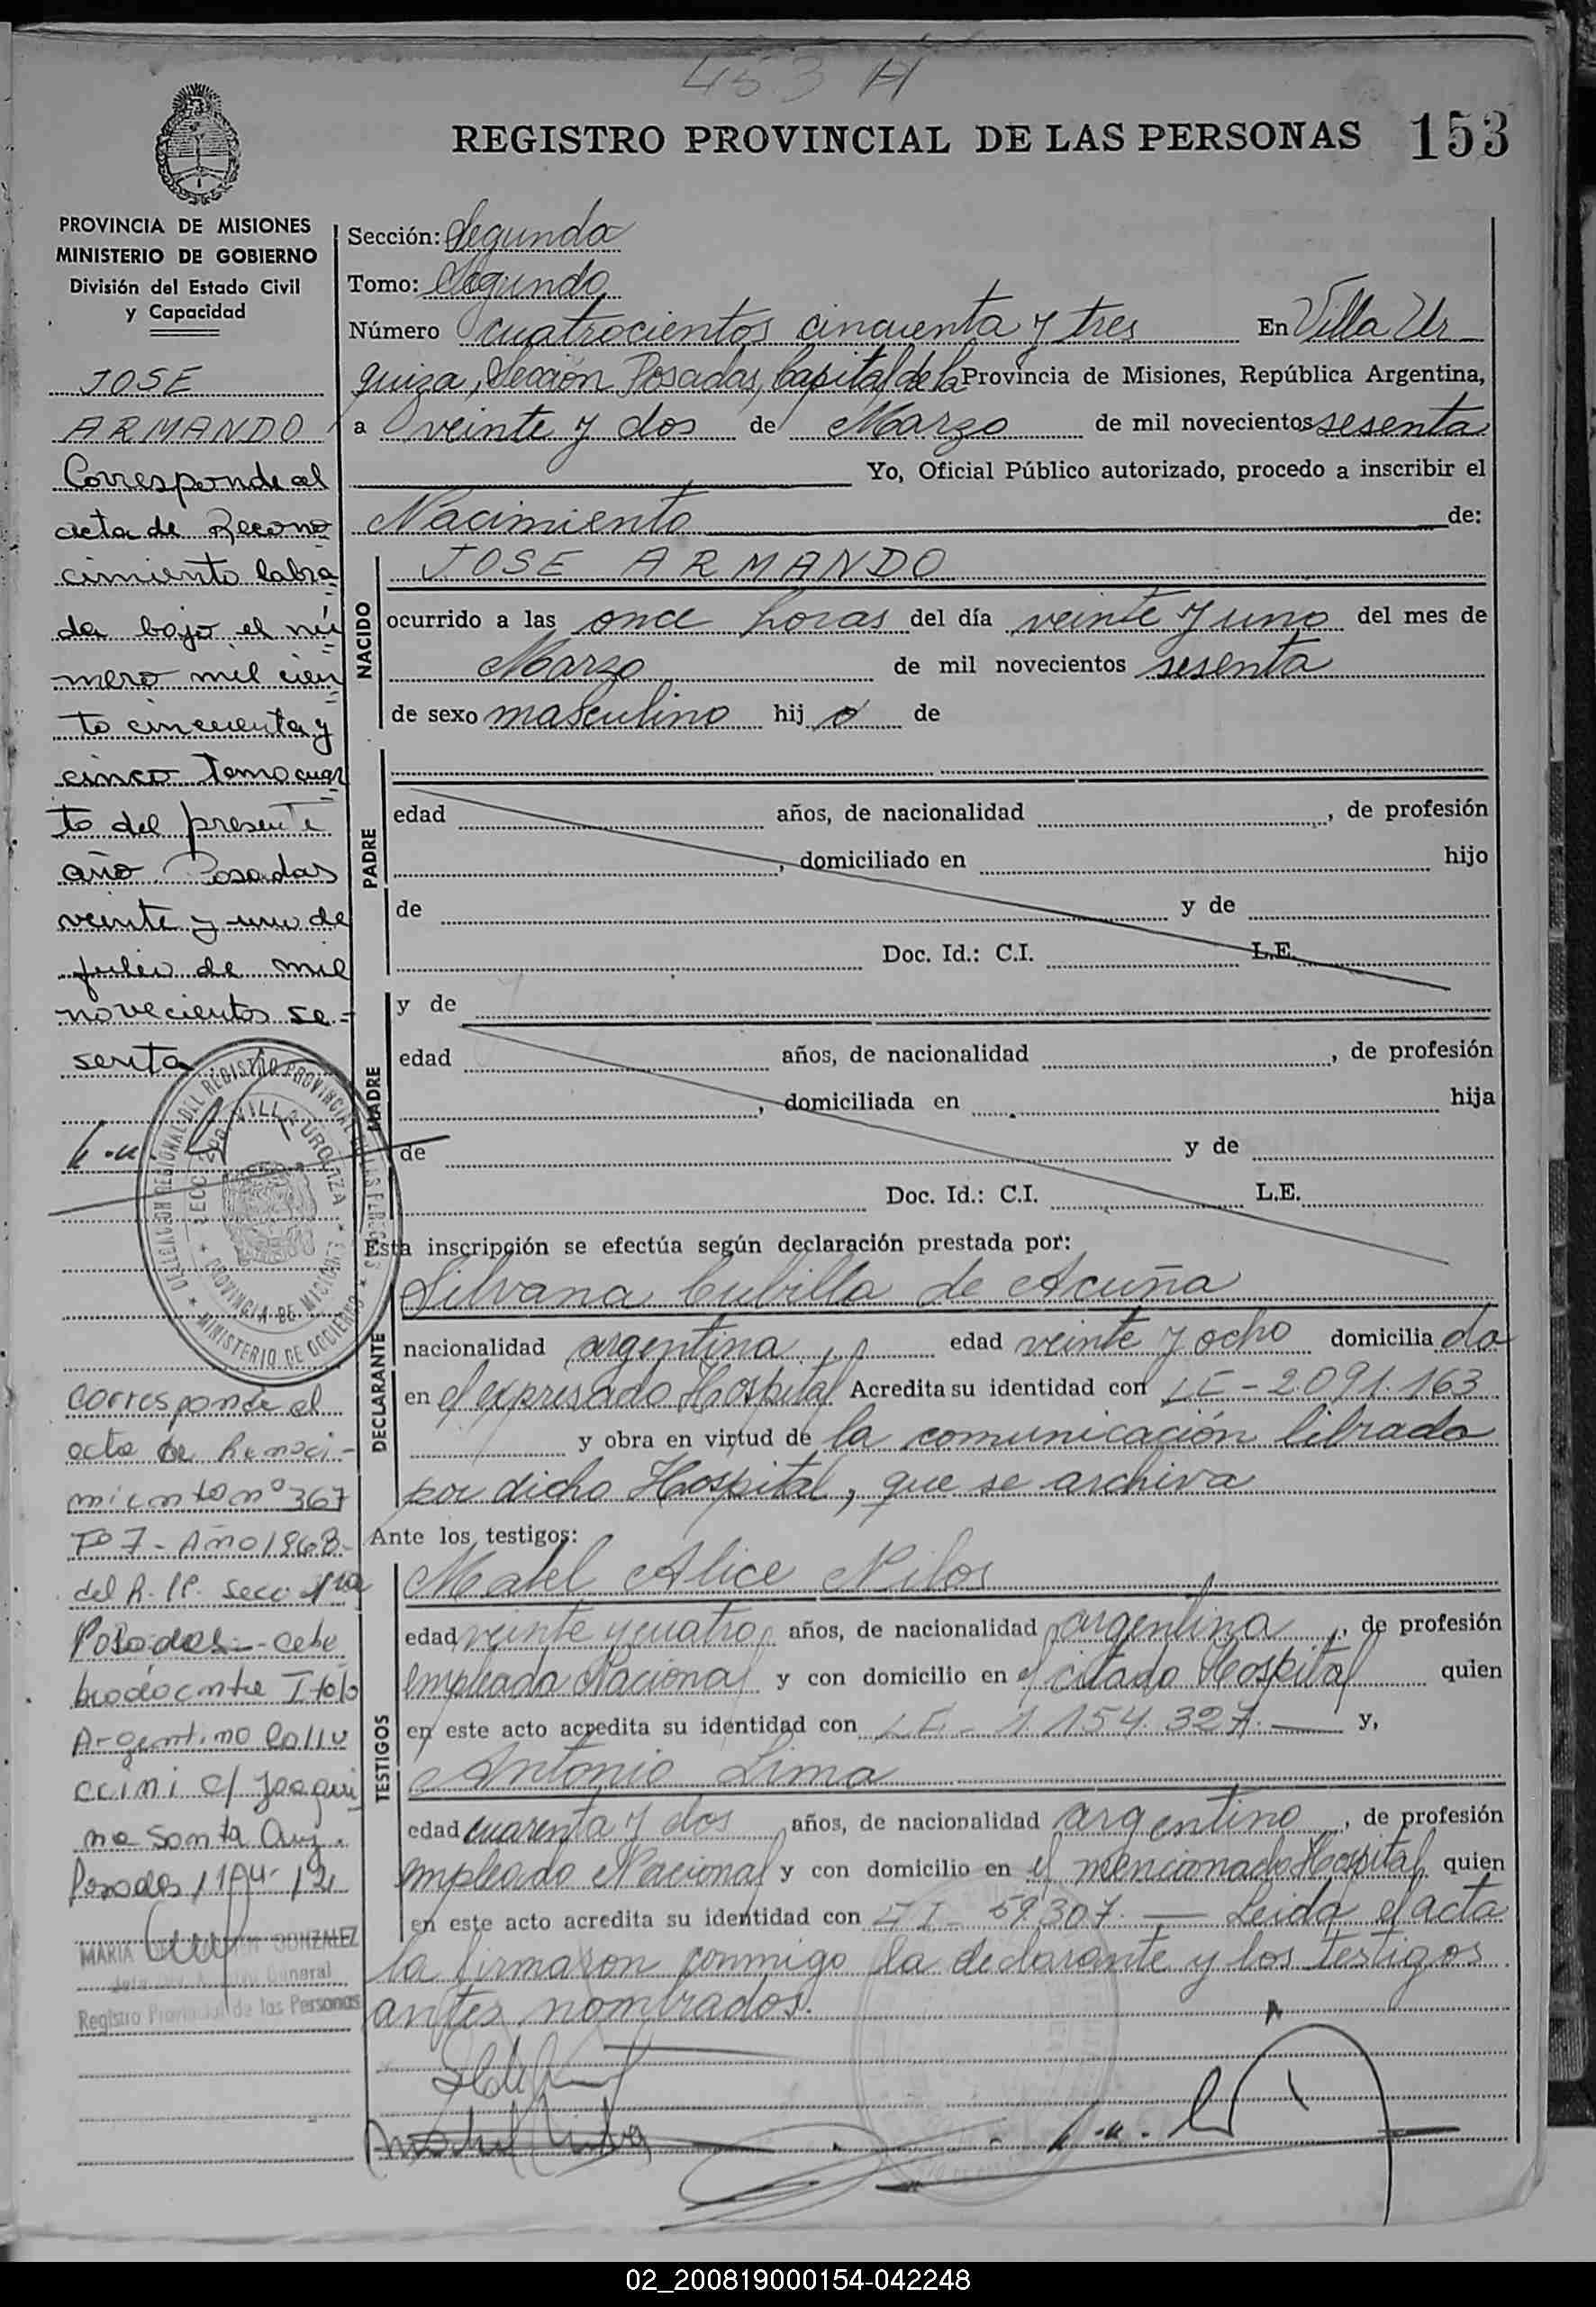 453 A
REGISTRO PROVINCIAL DE LAS PERSONAS 153
PROVINCIA DE MISIONES
MINISTERIO DE GOBIERNO
División del Estado Civil
y Capacidad
JOSE
ARMANDO
Corresponde al
acta de Recono
cimiento labra
da bajo el nú
mero mil cien
to cincuenta y
cinco Tomo cuar
to del presente
año. Posadas
veinte y uno de
julio de mil
novecientos se=
senta
DELEGACION REGIONAL DEL REGISTRO PROVINCIAL DE LAS PERSONAS
SECC. 2da. VILLA URQUIZA
PROVINCIA DE MISIONES
MINISTERIO DE GOBIERNO
corresponde al
acta de
miento nº 367
Tº 7 - Año 1968-
del R. P. Secc 1ra
Posadas
Argentino
c/ Joaqui
na Santa Cruz.
Posadas,
MARIA GONZALEZ
General
Registro Provincial de las Personas
Sección: Segunda
Tomo: Segundo
Número cuatrocientos cincuenta y tres En Villa Ur
quiza, Sección Posadas, Capital de la Provincia de Misiones, República Argentina,
a veinte y dos de Marzo de mil novecientos sesenta
Yo, Oficial Público autorizado, procedo a inscribir el
Nacimiento de:
NACIDO
JOSE ARMANDO
ocurrido a las once horas del día veinte y uno del mes de
Marzo de mil novecientos sesenta
de sexo masculino hijo de
PADRE
edad años, de nacionalidad , de profesión
, domiciliado en hijo
de y de
Doc. Id.: C.I. L.E.
MADRE
y de
edad años, de nacionalidad , de profesión
, domiciliada en hija
de y de
Doc. Id.: C.I. L.E.
Esta inscripción se efectúa según declaración prestada por:
DECLARANTE
Silvana Cubilla de Acuña
nacionalidad argentina edad veinte y ocho domiciliada
en el expresado Hospital Acredita su identidad con LE-2.091.163
y obra en virtud de la comunicación librada
por dicho Hospital, que se archiva
Ante los testigos:
TESTIGOS
Mabel Alice
edad veinte y cuatro años, de nacionalidad argentina, de profesión
empleada Nacional y con domicilio en el citado Hospital quien
en este acto acredita su identidad con LE-1.154.327.— y,
Antonio Lima
edad cuarenta y dos años, de nacionalidad argentino, de profesión
empleado Nacional y con domicilio en el mencionado Hospital quien
en este acto acredita su identidad con 59307.— Leida el acta
la firmaron conmigo la declarante y los testigos
antes nombrados.
02_200819000154-042248